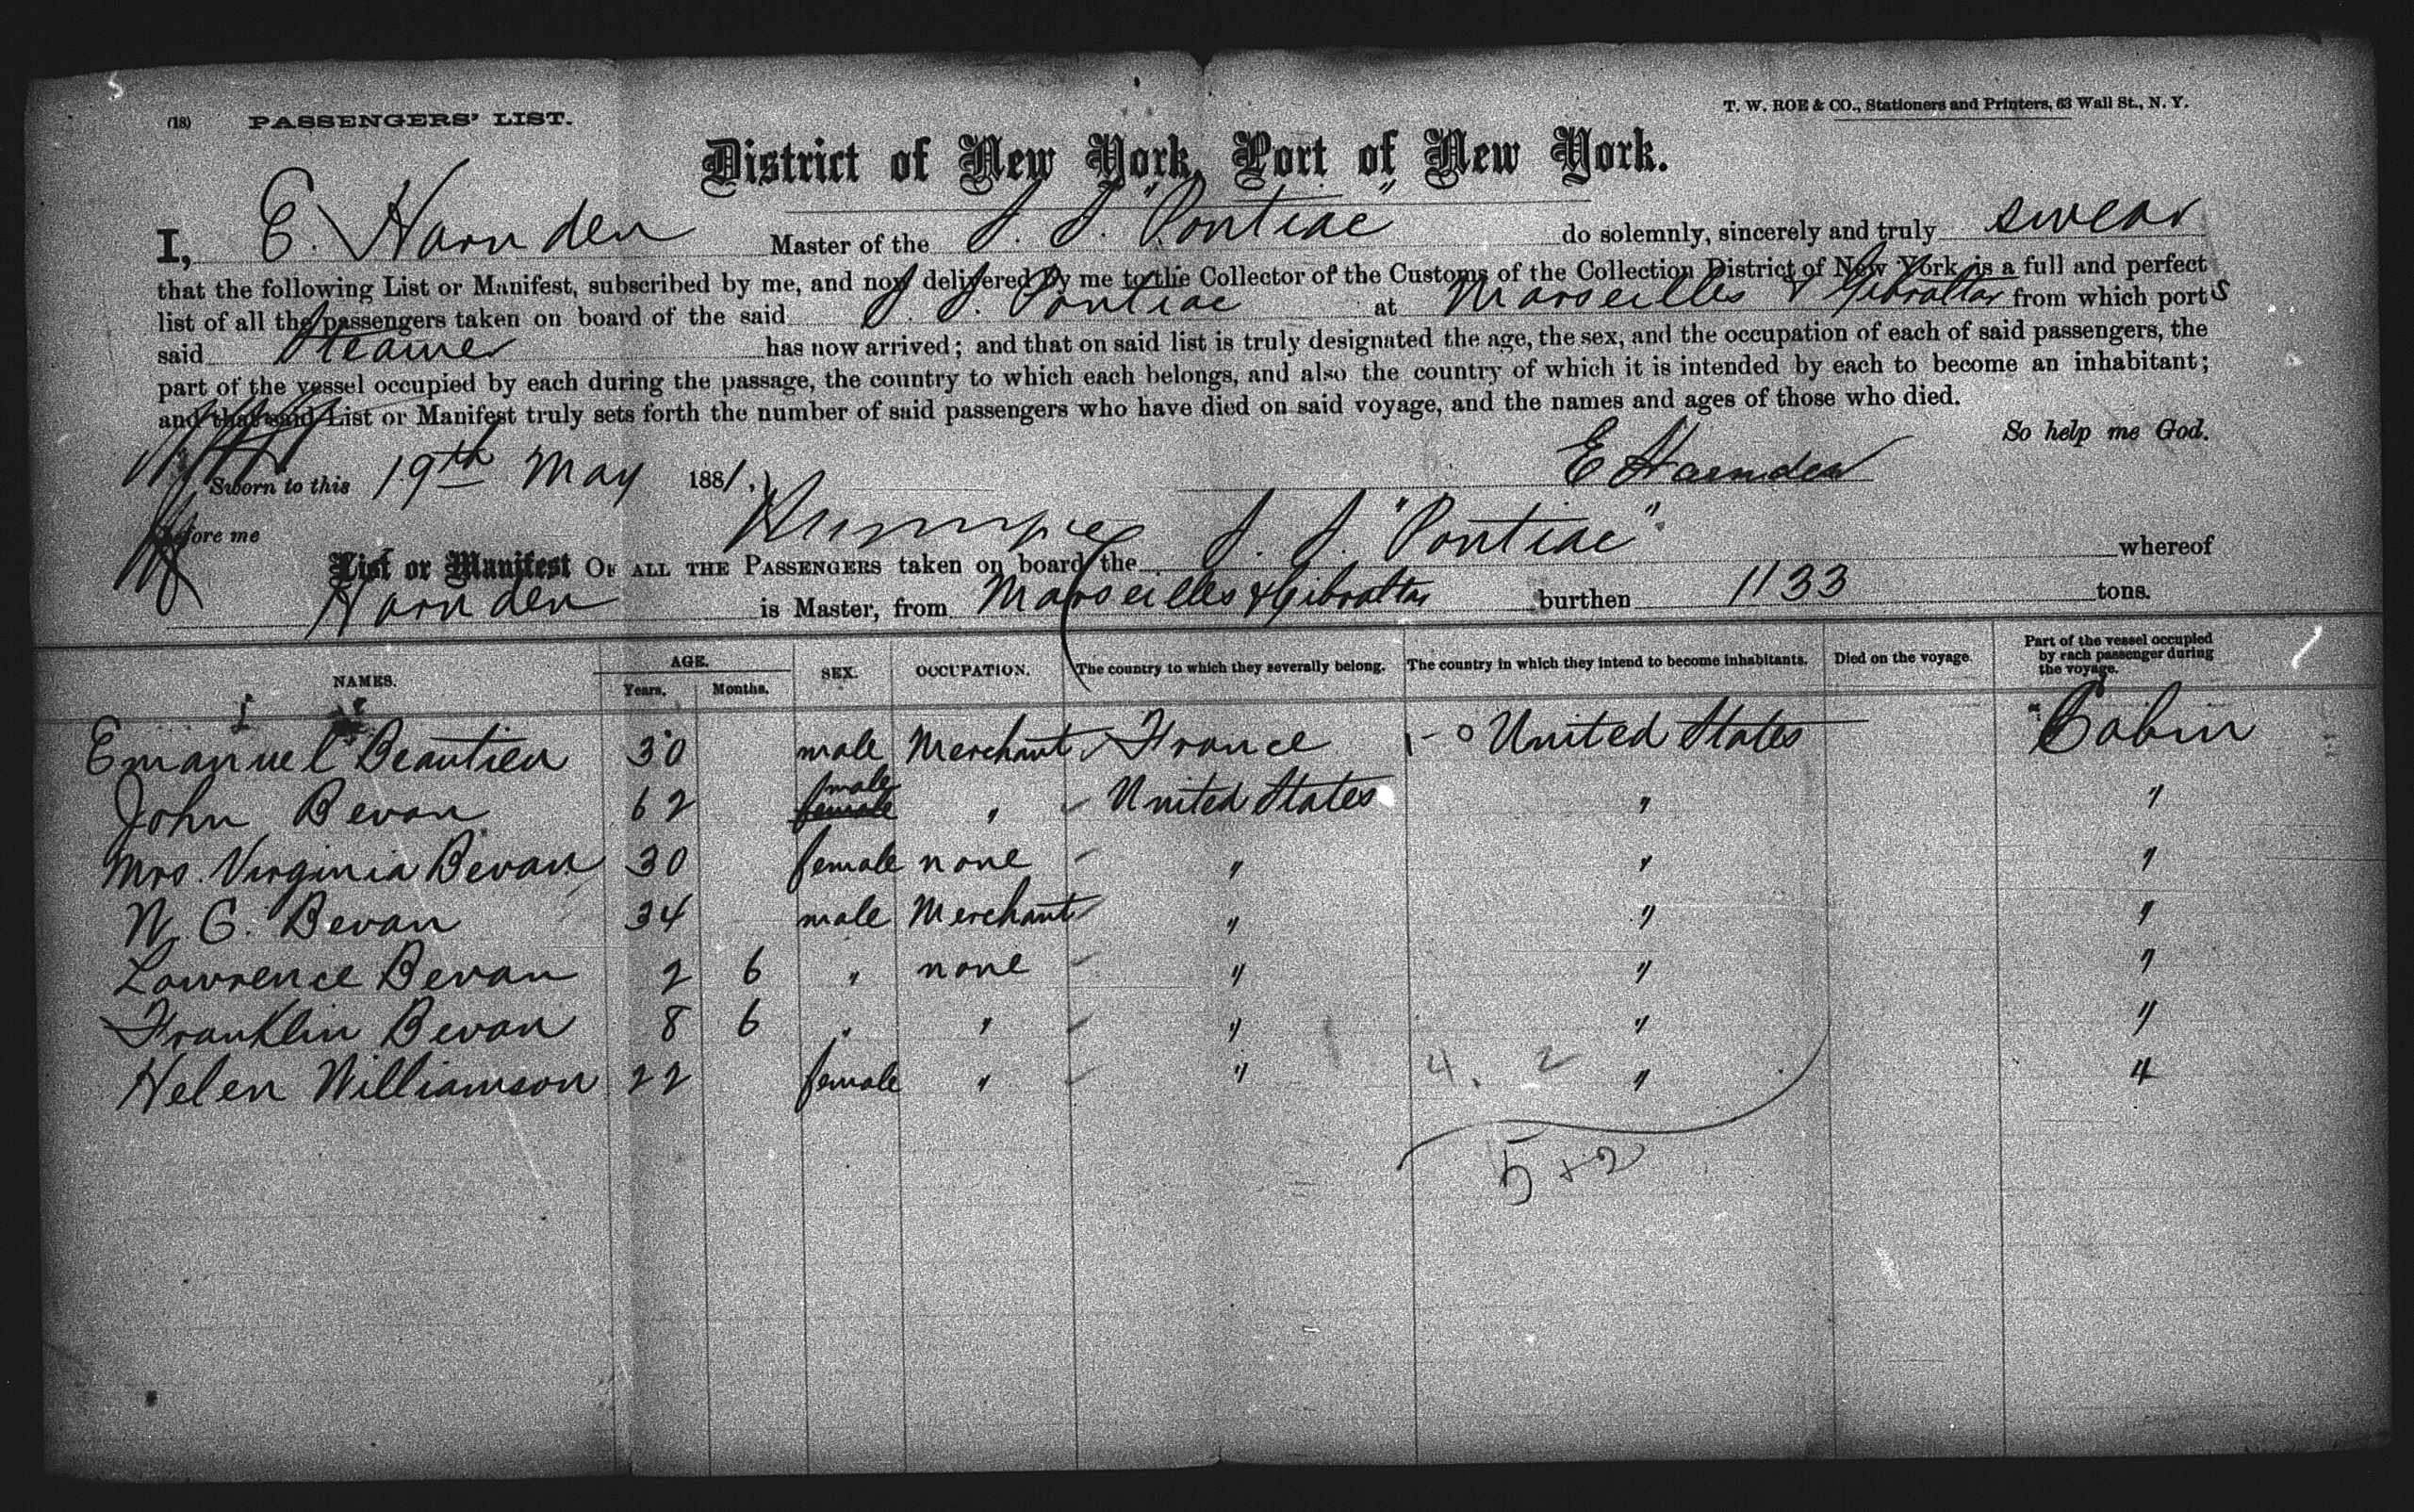 (18) PASSENGERS' LIST.
T. W. ROE & CO., Stationers and Printers, 63 Wall St., N. Y.
District of New York, Port of New York.
I, E. Harnden Master of the S. S. "Pontiac" do solemnly, sincerely and truly swear
that the following List or Manifest, subscribed by me, and now delivered by me to the Collector of the Customs of the Collection District of New York, is a full and perfect
list of all the passengers taken on board of the said S. S. Pontiac at Marseilles & Gibraltar from which ports
said Steamer has now arrived; and that on said list is truly designated the age, the sex, and the occupation of each of said passengers, the
part of the vessel occupied by each during the passage, the country to which each belongs, and also the country of which it is intended by each to become an inhabitant;
and that said List or Manifest truly sets forth the number of said passengers who have died on said voyage, and the names and ages of those who died.
So help me God.
Sworn to this 19th May 1881, E Harnden
Before me
List or Manifest OF ALL THE PASSENGERS taken on board the S. S. "Pontiac" whereof
Harnden is Master, from Marseilles & Gibraltar burthen 1133 tons.
NAMES. AGE. Years. Months. SEX. OCCUPATION. The country to which they severally belong. The country in which they intend to become inhabitants. Died on the voyage. Part of the vessel occupied by each passenger during the voyage.
Emanuel Beautien 30 male Merchant France 1-0 United States Cabin
John Bevan 62 female male " United States " "
Mrs. Virginia Bevan 30 female none " " "
N. G. Bevan 34 male Merchant " " "
Lawrence Bevan 2 6 " none " " "
Franklin Bevan 8 6 " " " " "
Helen Williamson 22 female " " 4. 2 " "
5 + 2